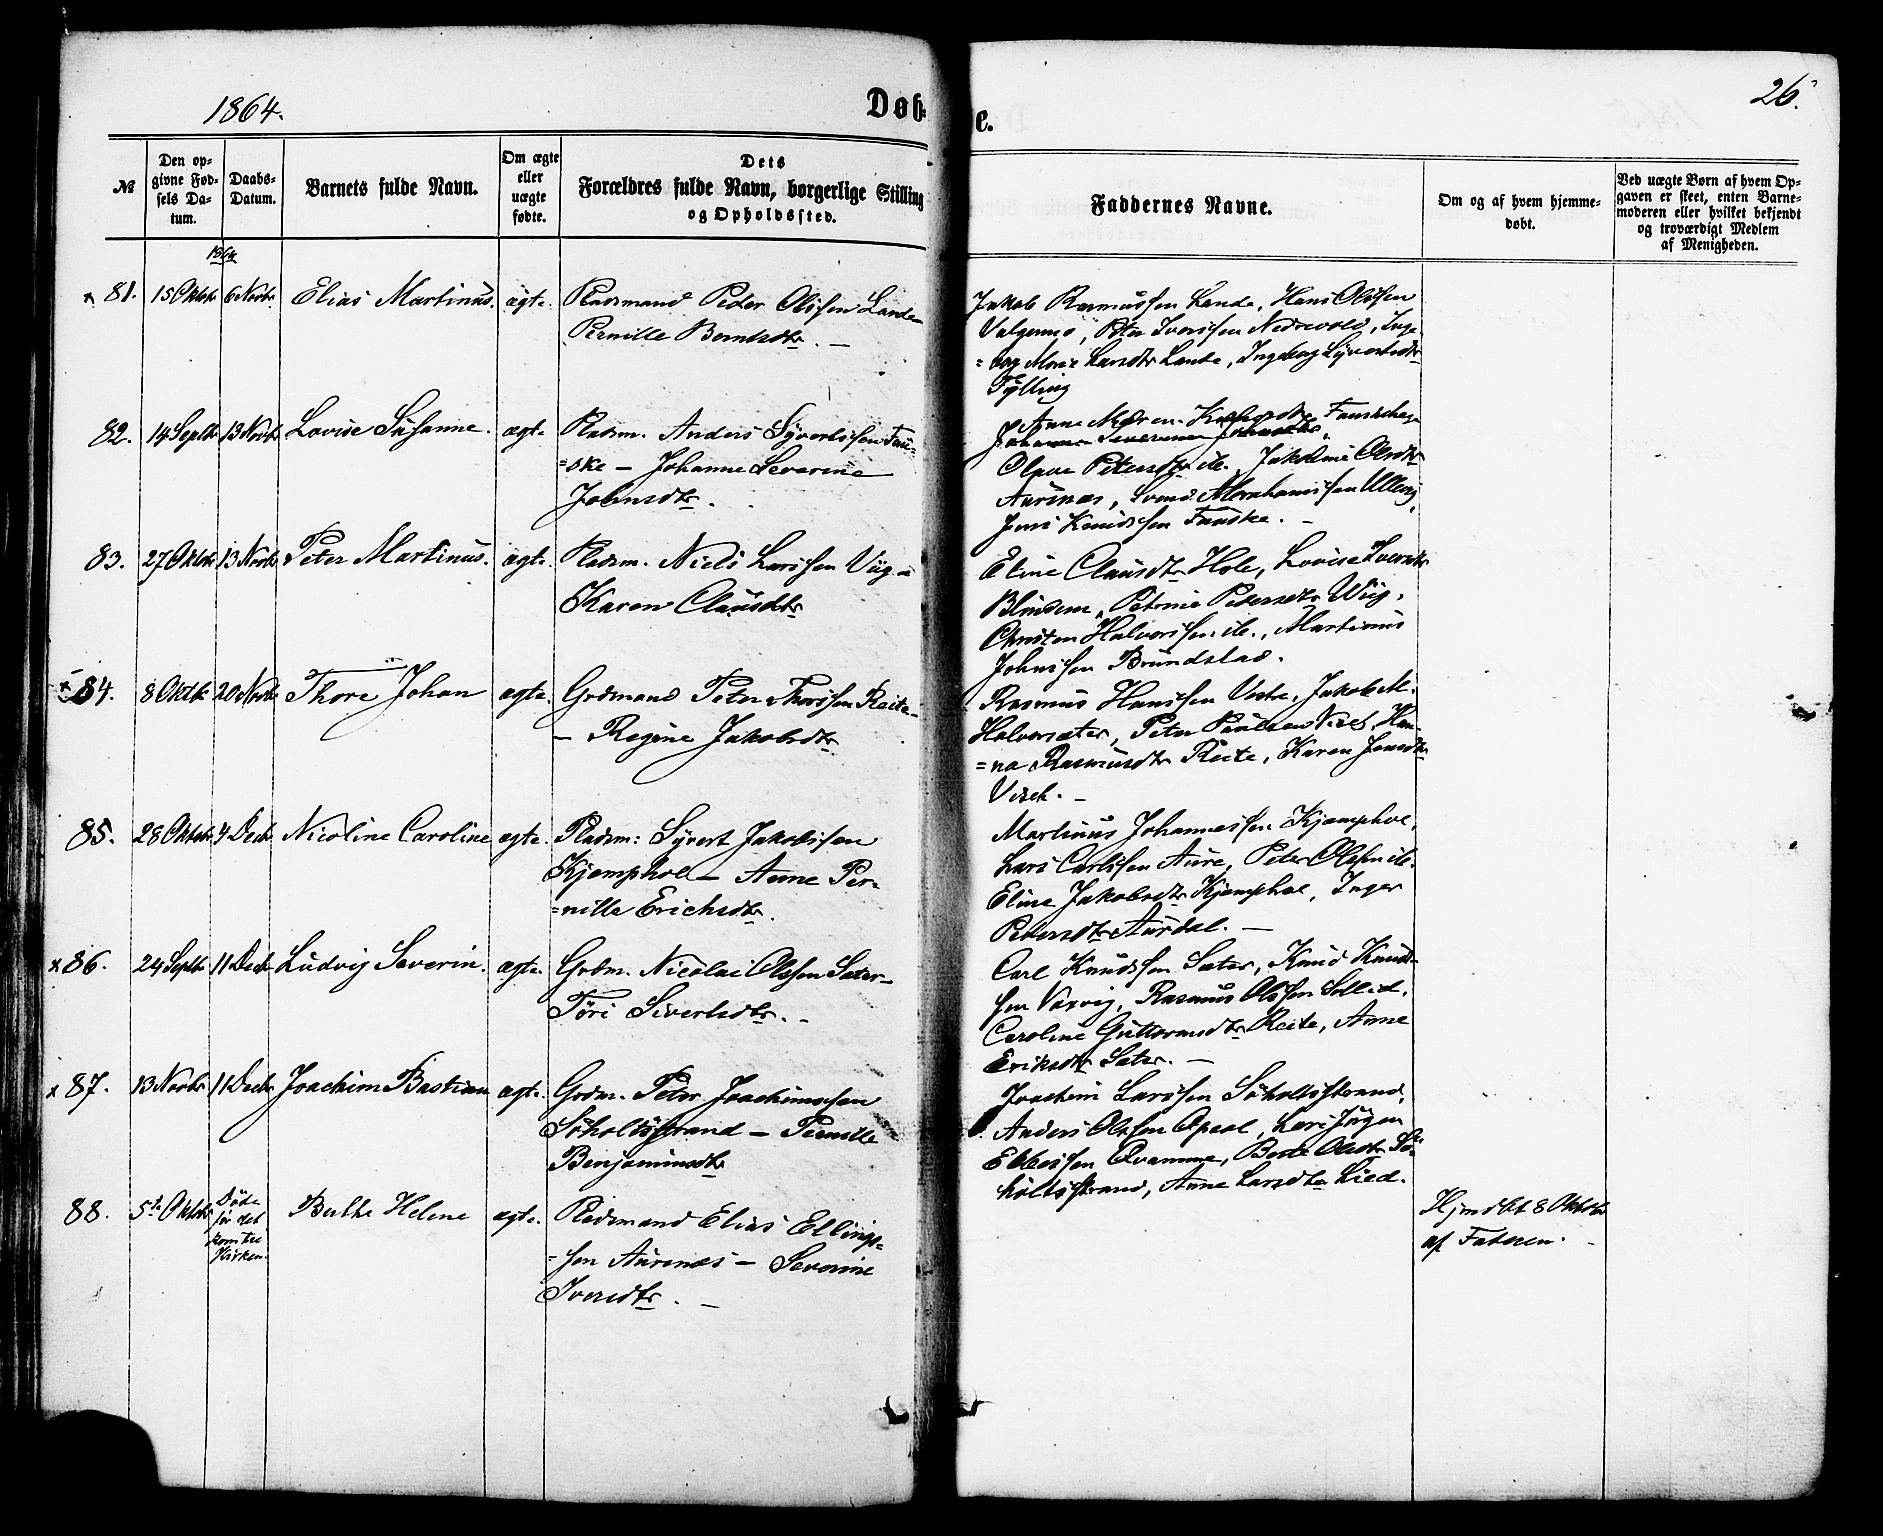 1864.
Døb-
e.
26.
№
Den op-
givne Fød-
sels Da-
tum.
Daabs-
Datum.
Barnets fulde Navn.
Om ægte
eller
uægte
fødte.
Dets
Forældres fulde Navn, borgerlige Stilling
og Opholdssted.
Faddernes Navne.
Om og af hvem hjemme-
døbt.
Ved uægte Børn af hvem Op-
gaven er skeet, enten Barne-
moderen eller hvilket bekjendt
og troværdigt Medlem
af Menigheden.
1864
81. 15 Oktbr 6 Novbr Elias Martinus. ægte. Pladsmand Peder Olssen Lande-
Pernille Berntsdtr. —
Jakob Rasmussen Lande, Hans Olssen
Valgermo, Peter Iverssen Nedrevold, Inge-
=borg Marie Larsdtr Lande, Ingeborg Syvertsdtr
Tylling
82. 14 Septbr 13 Novbr Lovise Susanne. ægte. Pladsm. Anders Syvertssen Fau-
=ske — Johanne Severine
Johnsdtr.
Anne Maren
Johanne Severine Johnsdtr,
Olave Petersdtr ib., Jakobine Olsdtr
Aurenæs, Svend Abrahamssen Ulling,
Jens Knudssen Fauske. —
83. 27 Oktbr 13 Novbr Peter Martinus. ægte. Pladsm. Niels Larssen Viig —
Karen Clausdtr
Eline Clausdtr Hole, Lovise Iversdtr
Blindem, Petrine Petersdtr Wiig,
Christen Halvorssen ib., Martinus
Johnssen Brundstad.
84. 8 Oktbr 20 Novbr Thore Johan ægte. Grdmand Peter Thorssen Reite-
— Regine Jakobsdtr
Rasmus Hanssen Vestre, Jakob M.
Halvorsæter, Peter Paulsen Viset, Han-
=na Rasmusdtr Reite, Karen Jensdtr
Viset. —
85. 28 Oktbr 4 Decbr Nicoline Caroline ægte. Pladsm: Syvert Jakobssen
Kjemphol — Anne Per-
=nille Erichsdtr.
Martinus Johannessen Kjemphol,
Lars Carlssen Aure, Peter Olssen ib.
Eline Jakobsdtr Kjemphol, Inger
Pedersdtr Aurdal. —
x 86. 24 Septbr 11 Decbr Ludvig Severin. ægte. Grdm. Nicolai Olssen Sæter-
Tøri Sivertsdtr. —
Carl Knudssen Sæter, Knud Knud-
sen Vaxvig, Rasmus Olssen Sollid.
Caroline Guttormsdtr Reite, Anne
Eriksdtr Sæter. —
x 87. 13 Novbr 11 Decbr Joachim Bastian ægte. Grdm. Peter Joachimssen
Søholtsstrand — Pernille
Benjaminsdtr
Joachim Larssen Søholtsstrand,
Anders Olssen Apsol, Lars Jørgen
Ebbessen Qvamme, Berte Olsdtr Sø-
holtsstrand, Anne Larsdtr Lied.
88. 5te Oktbr Døde
før det
kom til
Kirken. Berthe Helene ægte. Pladsmand Elias Ellings-
=sen Aurenæs — Severine
Iversdtr. —
Hjmdbt 8 Oktbr
af Faderen. —